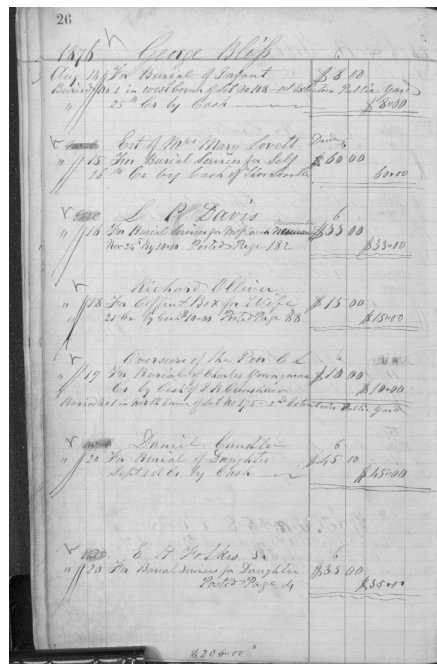 26
1876 George Bliss
Aug 14 For Burial of Infant $8 00
Buried No 1 in west corner of Lot No 108 - 1st Extention Public Yard
" 25th Cr by Cash $8.00
Est of Mrs Mary Lovett
" 15 For Burial Services for Self $60 00
16th Cr by Cash of 60.00
L P Davis 6
" 16 For Burial Services for $33 00
Nov 24th By 10.00 Posted Page 182 $33.00
Richard Olliver
" 18 For Coffin & Box for Wife $15 00
21 Cr by Cash $10.00 Posted Page 88 $15.00
Overseers of the Poor C L 6
" 19 For Burial of Charles Youngman $10 00
Cr by Cash of $10.00
Buried No 1 in north corner of Lot No 175 - 2nd Extention Public Yard
Daniel Candler 6
" 20 For Burial of Daughter $45 00
Sept 1st Cr by Cash $45.00
E A Folkes Sr 6
" 20 For Burial Services for Daughter $35 00
Posted Page 4 $35.00
$206.00